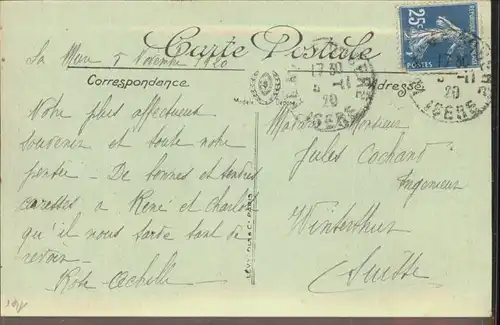 Carte Postale
La Mure 5 Novembre 1920
Correspondance
Adresse
Notre plus affectueux
souvenir et toute notre
pensée — De bonnes et tendres
caresses a René et Charlot
qu'il nous tarde tant de
revoir —
Rose
Madame Monsieur
Jules Cochand
Ingenieur
Winterthur
Suisse
25c
POSTES
17 30
5 -11
20
ISERE
17 30
5 -11
20
ISERE